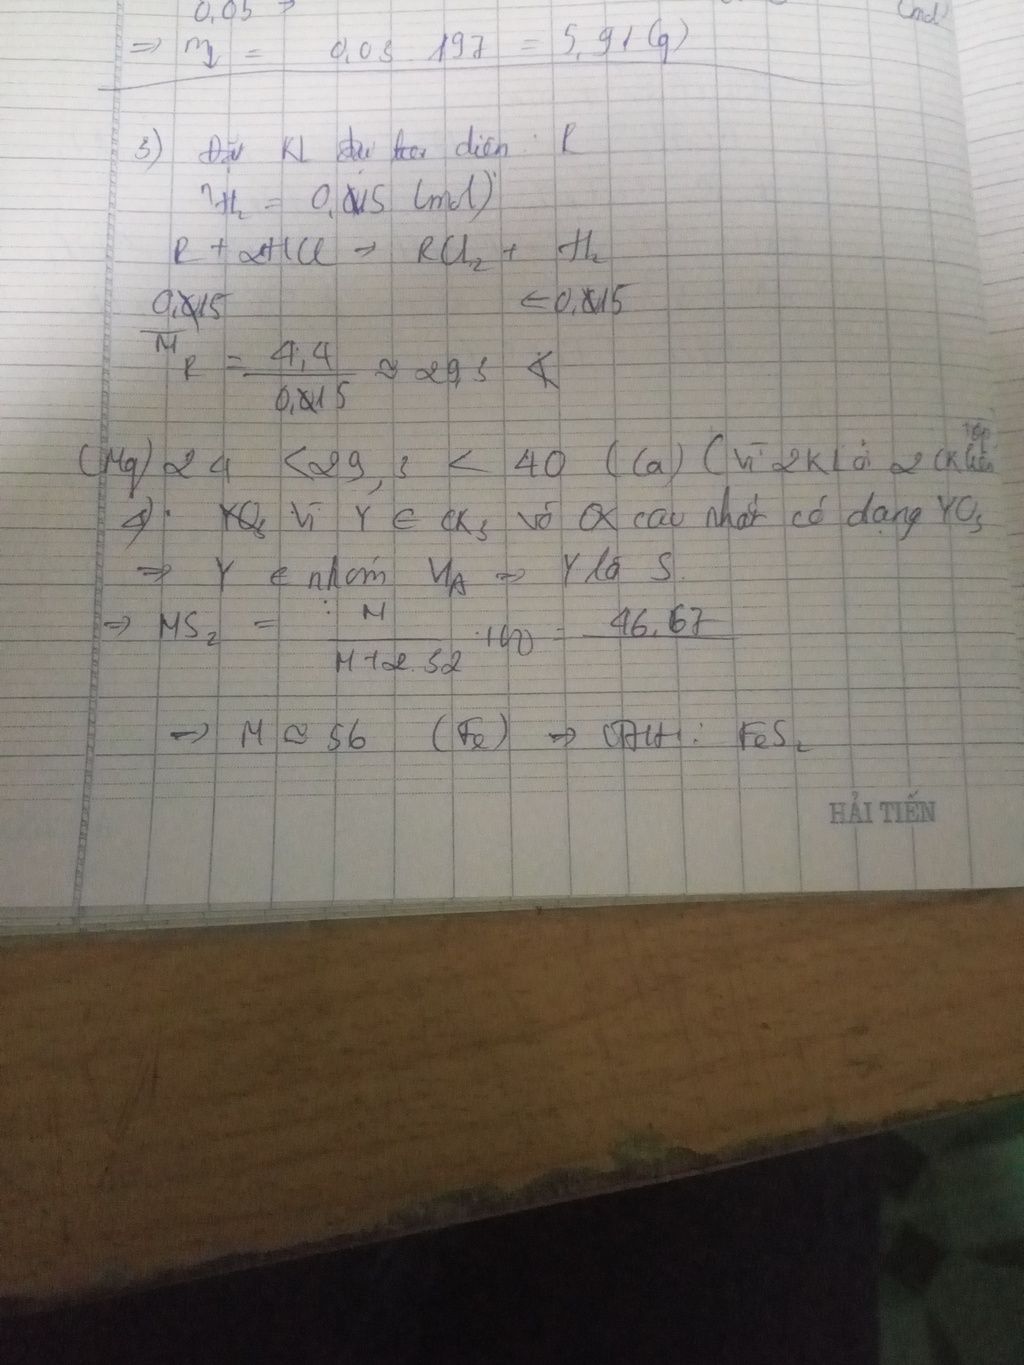 0,03 →
(mol)
⇒ m↓ = 0,03 197 = 5,91 (g)
3) Đặt KL đại diện : R
nH₂ = 0,15 (mol)
R + 2HCl → RCl₂ + H₂
0,15 ← 0,15
M R = 4,4 / 0,15 ≈ 29,3
(Mg) 24 < 29,3 < 40 (Ca) (vì 2KL ở 2 CK liên tiếp
4) YO₃ vì Y ∈ CK₃ và OX cao nhất có dạng YO₃
⇒ Y ∈ nhóm VIA ⇒ Y là S.
⇒ MS₂ = M / M+2.32 .100 = 46,67
⇒ M ≈ 56 (Fe) ⇒ CTHH: FeS₂
HẢI TIẾN